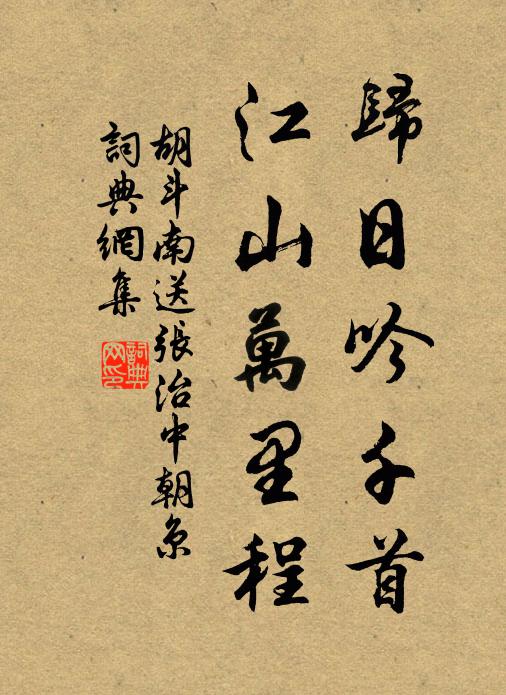 歸日吟千首
江山萬里程
胡斗南送張治中朝京
詞典網集
詞典网印